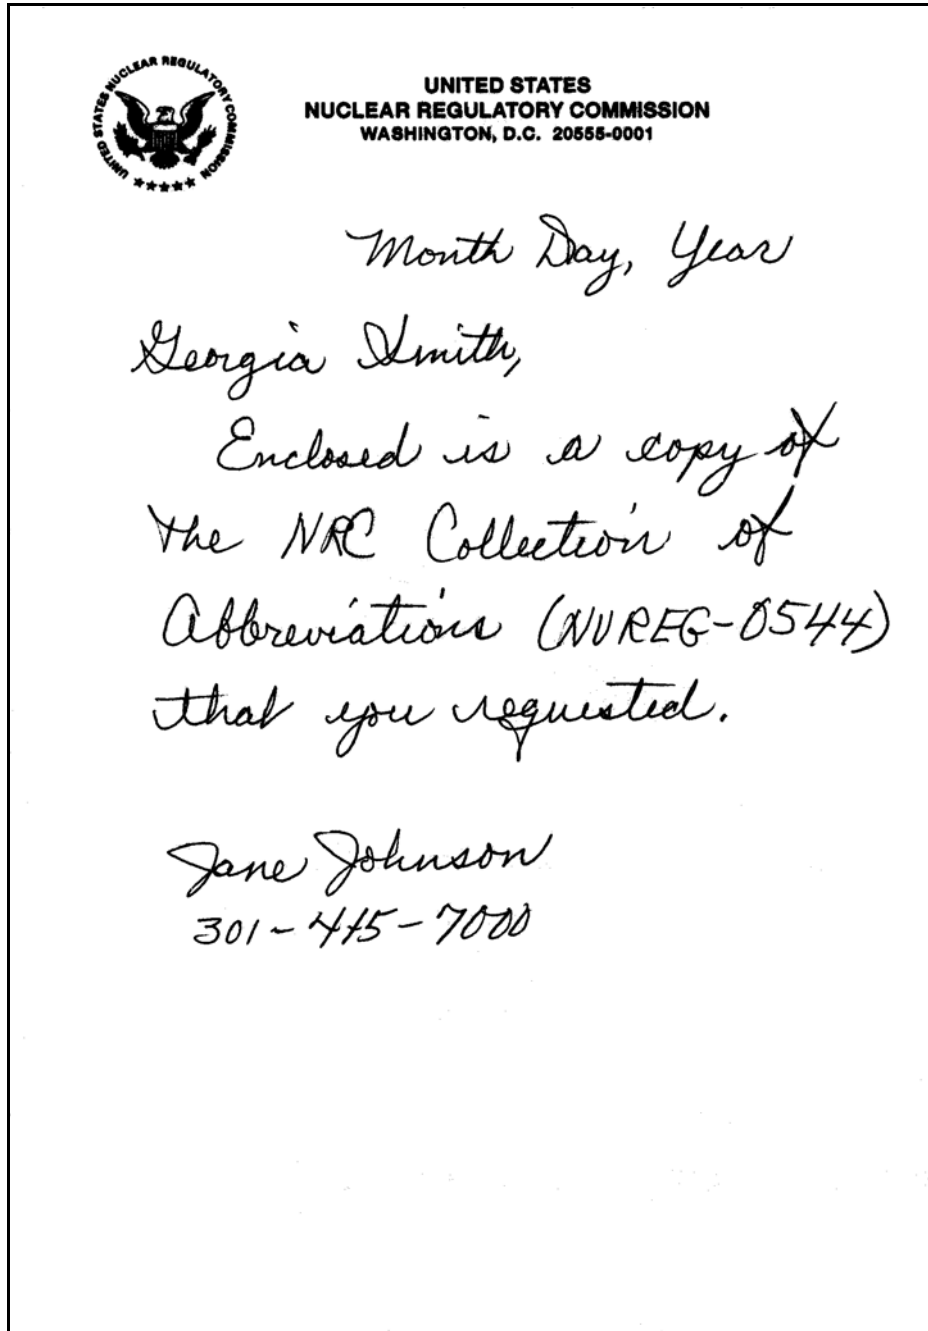 UNITED STATES NUCLEAR REGULATORY COMMISSION
UNITED STATES
NUCLEAR REGULATORY COMMISSION
WASHINGTON, D.C. 20555-0001
Month Day, Year
Georgia Smith,
Enclosed is a copy of
the NRC Collection of
Abbreviations (NUREG-0544)
that you requested.
Jane Johnson
301-415-7000